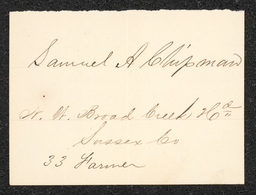 Samuel A Chipman
N. W. Broad Creek Hd
Sussex Co
33 Farmer